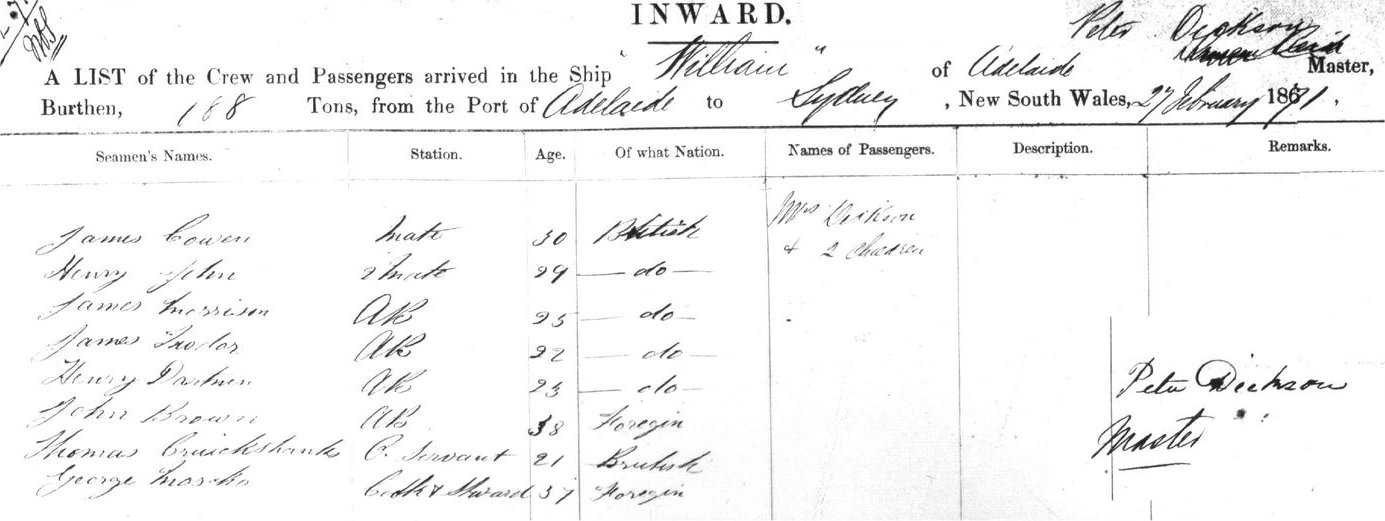 INWARD.
Peter Dickson
A LIST of the Crew and Passengers arrived in the Ship "William" of Adelaide Master,
Burthen, 188 Tons, from the Port of Adelaide to Sydney, New South Wales, 27 February 1871,
Seamen's Names. Station. Age. Of what Nation. Names of Passengers. Description. Remarks.
James Cowen Mate 30 British Mrs Dickson
& 2 Children
Henry John 2 Mate 29 — do —
James Morrison AB 25 — do —
James AB 22 — do —
Henry AB 23 — do — Peter Dickson
John Brown AB 38 Foregin
Master
Thomas Cruickshank O. Servant 21 British
George Cook & Steward 37 Foregin